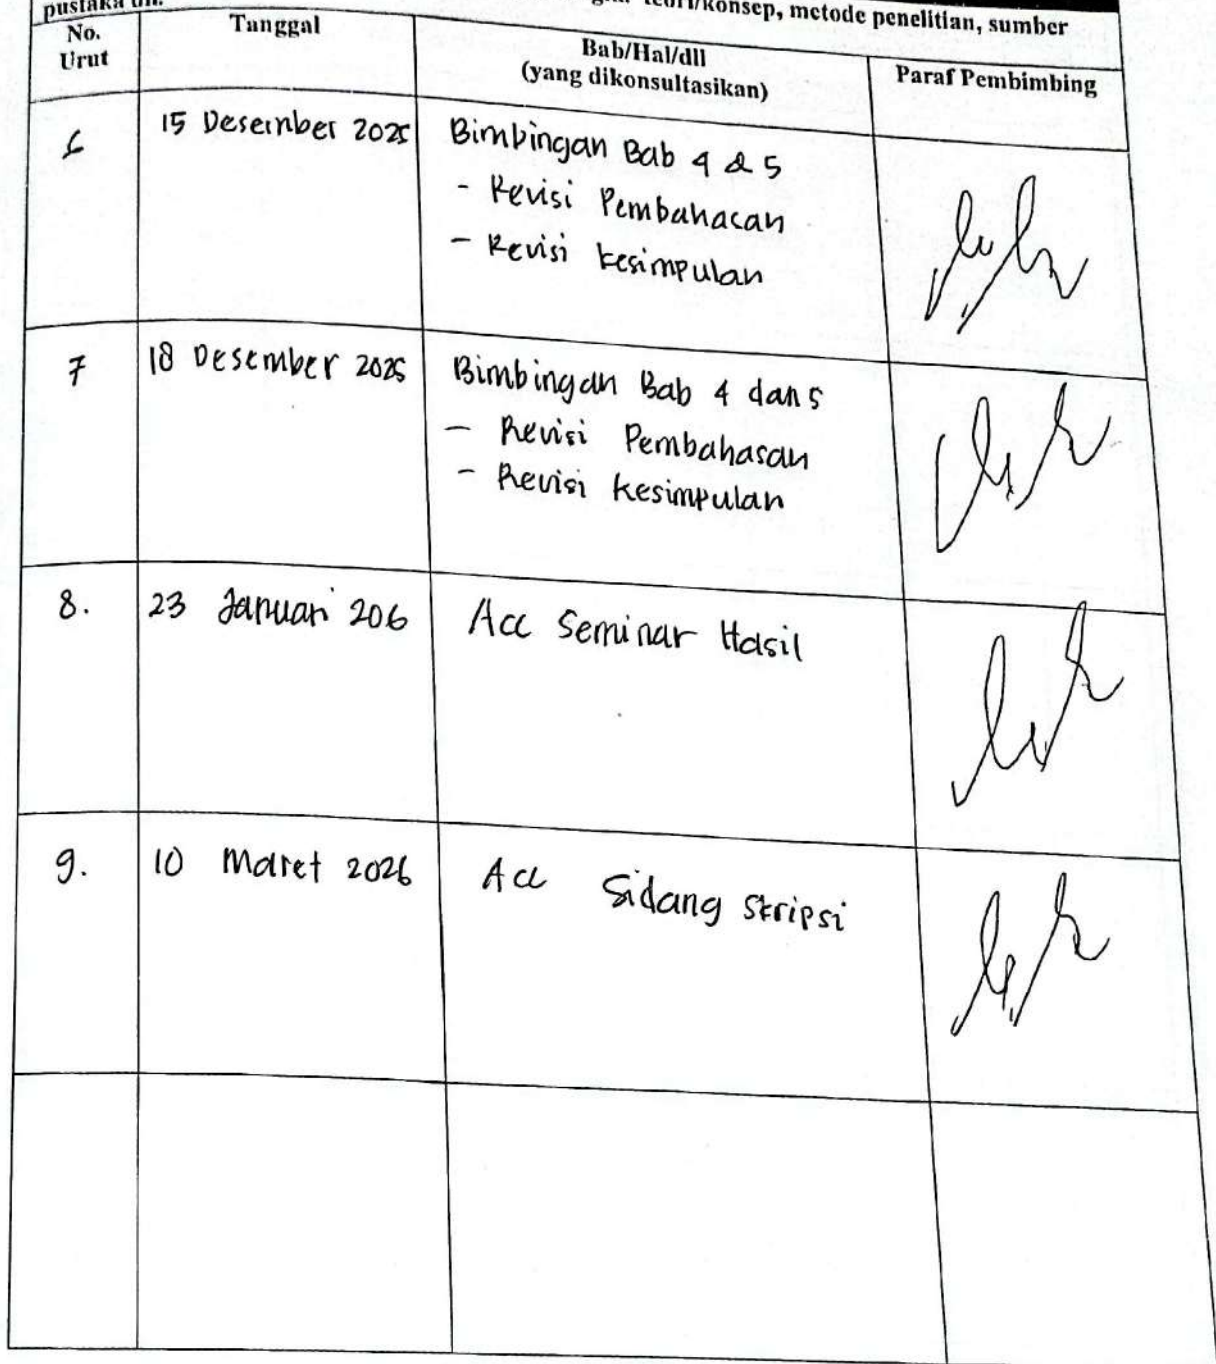 pustaka dll. teori/konsep, metode penelitian, sumber
No. Urut
Tanggal
Bab/Hal/dll
(yang dikonsultasikan)
Paraf Pembimbing
6
15 Desember 2025
Bimbingan Bab 4 & 5
- Revisi Pembahasan
- Revisi kesimpulan
7
18 Desember 2025
Bimbingan Bab 4 dan 5
- Revisi Pembahasan
- Revisi kesimpulan
8.
23 Januari 206
Acc Seminar Hasil
9.
10 Maret 2026
Acc Sidang Skripsi